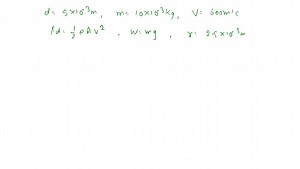 d = 5×10⁻³m, m = 10×10⁻³kg, V = 600m/s
fd = ½ ρAv², W = mg, r = 2.5×10⁻³m